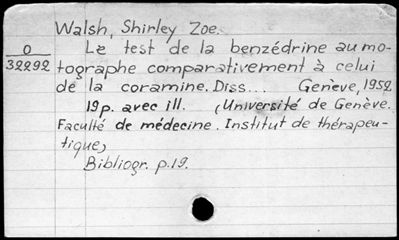 Walsh, Shirley Zoe.
O
32292
Le test de la benzédrine au mo-
tographe comparativement à celui
de la coramine. Diss... Genève, 1952.
19 p. avec ill. (Université de Genève.
Faculté de médecine. Institut de thérapeu-
tique)
Bibliogr. p. 19.